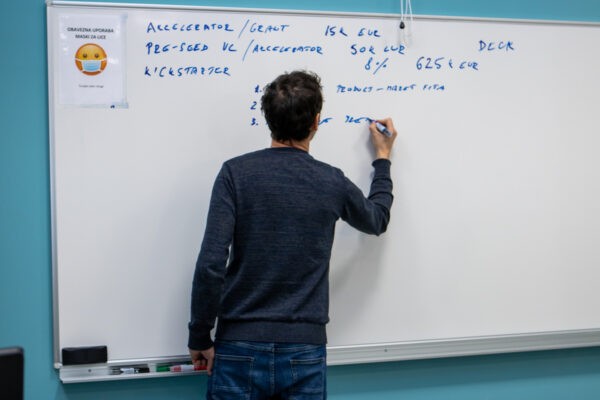 OBAVEZNA UPORABA
MASKI ZA LICE
ACCELERATOR/GRANT 15K EUR
PRE-SEED VC/ACCELERATOR 50K EUR DECK
8% 625K EUR
KICKSTARTER
1. PRODUCT-MARKET
2.
3.